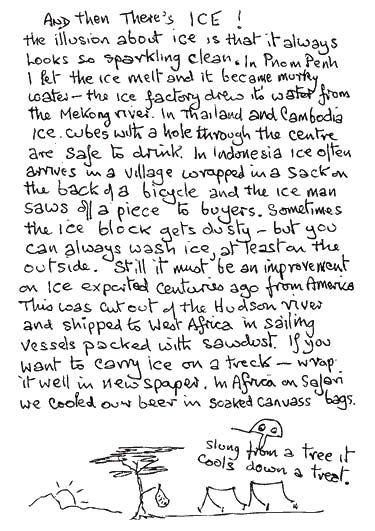 AND then There's ICE !
the illusion about ice is that it always
looks so sparkling clean. In Pnom Penh
I let the ice melt and it became murky
water – the ice factory drew its water from
the Mekong river. In Thailand and Cambodia
ice cubes with a hole through the centre
are safe to drink. In Indonesia ice often
arrives in a village wrapped in a sack on
the back of a bicycle and the ice man
saws off a piece to buyers. Sometimes
the ice block gets dusty – but you
can always wash ice, at least on the
outside. Still it must be an improvement
on ice exported centuries ago from America
This was cut out of the Hudson river
and shipped to West Africa in sailing
vessels packed with sawdust. If you
want to carry ice on a treck – wrap
it well in newspaper. In Africa on Safari
we cooled our beer in soaked canvass bags.
slung from a tree it
cools down a treat.